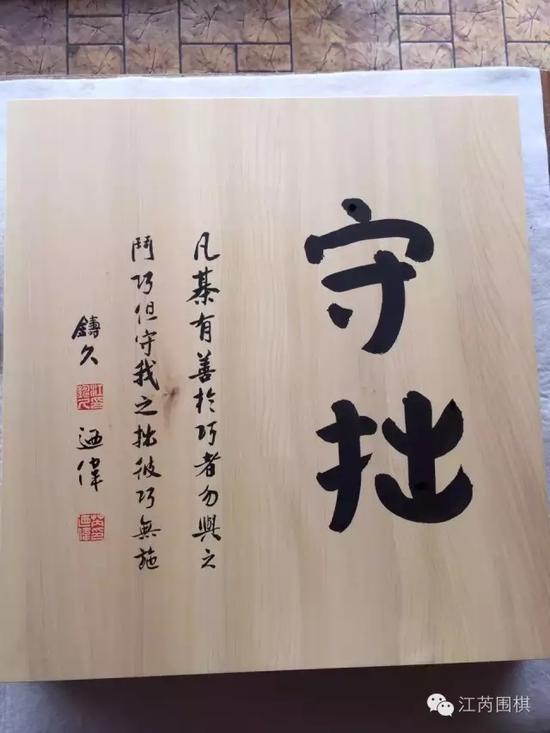 守拙
凡棊有善於巧者勿與之
鬥巧但守我之拙彼巧無施
鑄久
迺偉
江芮围棋